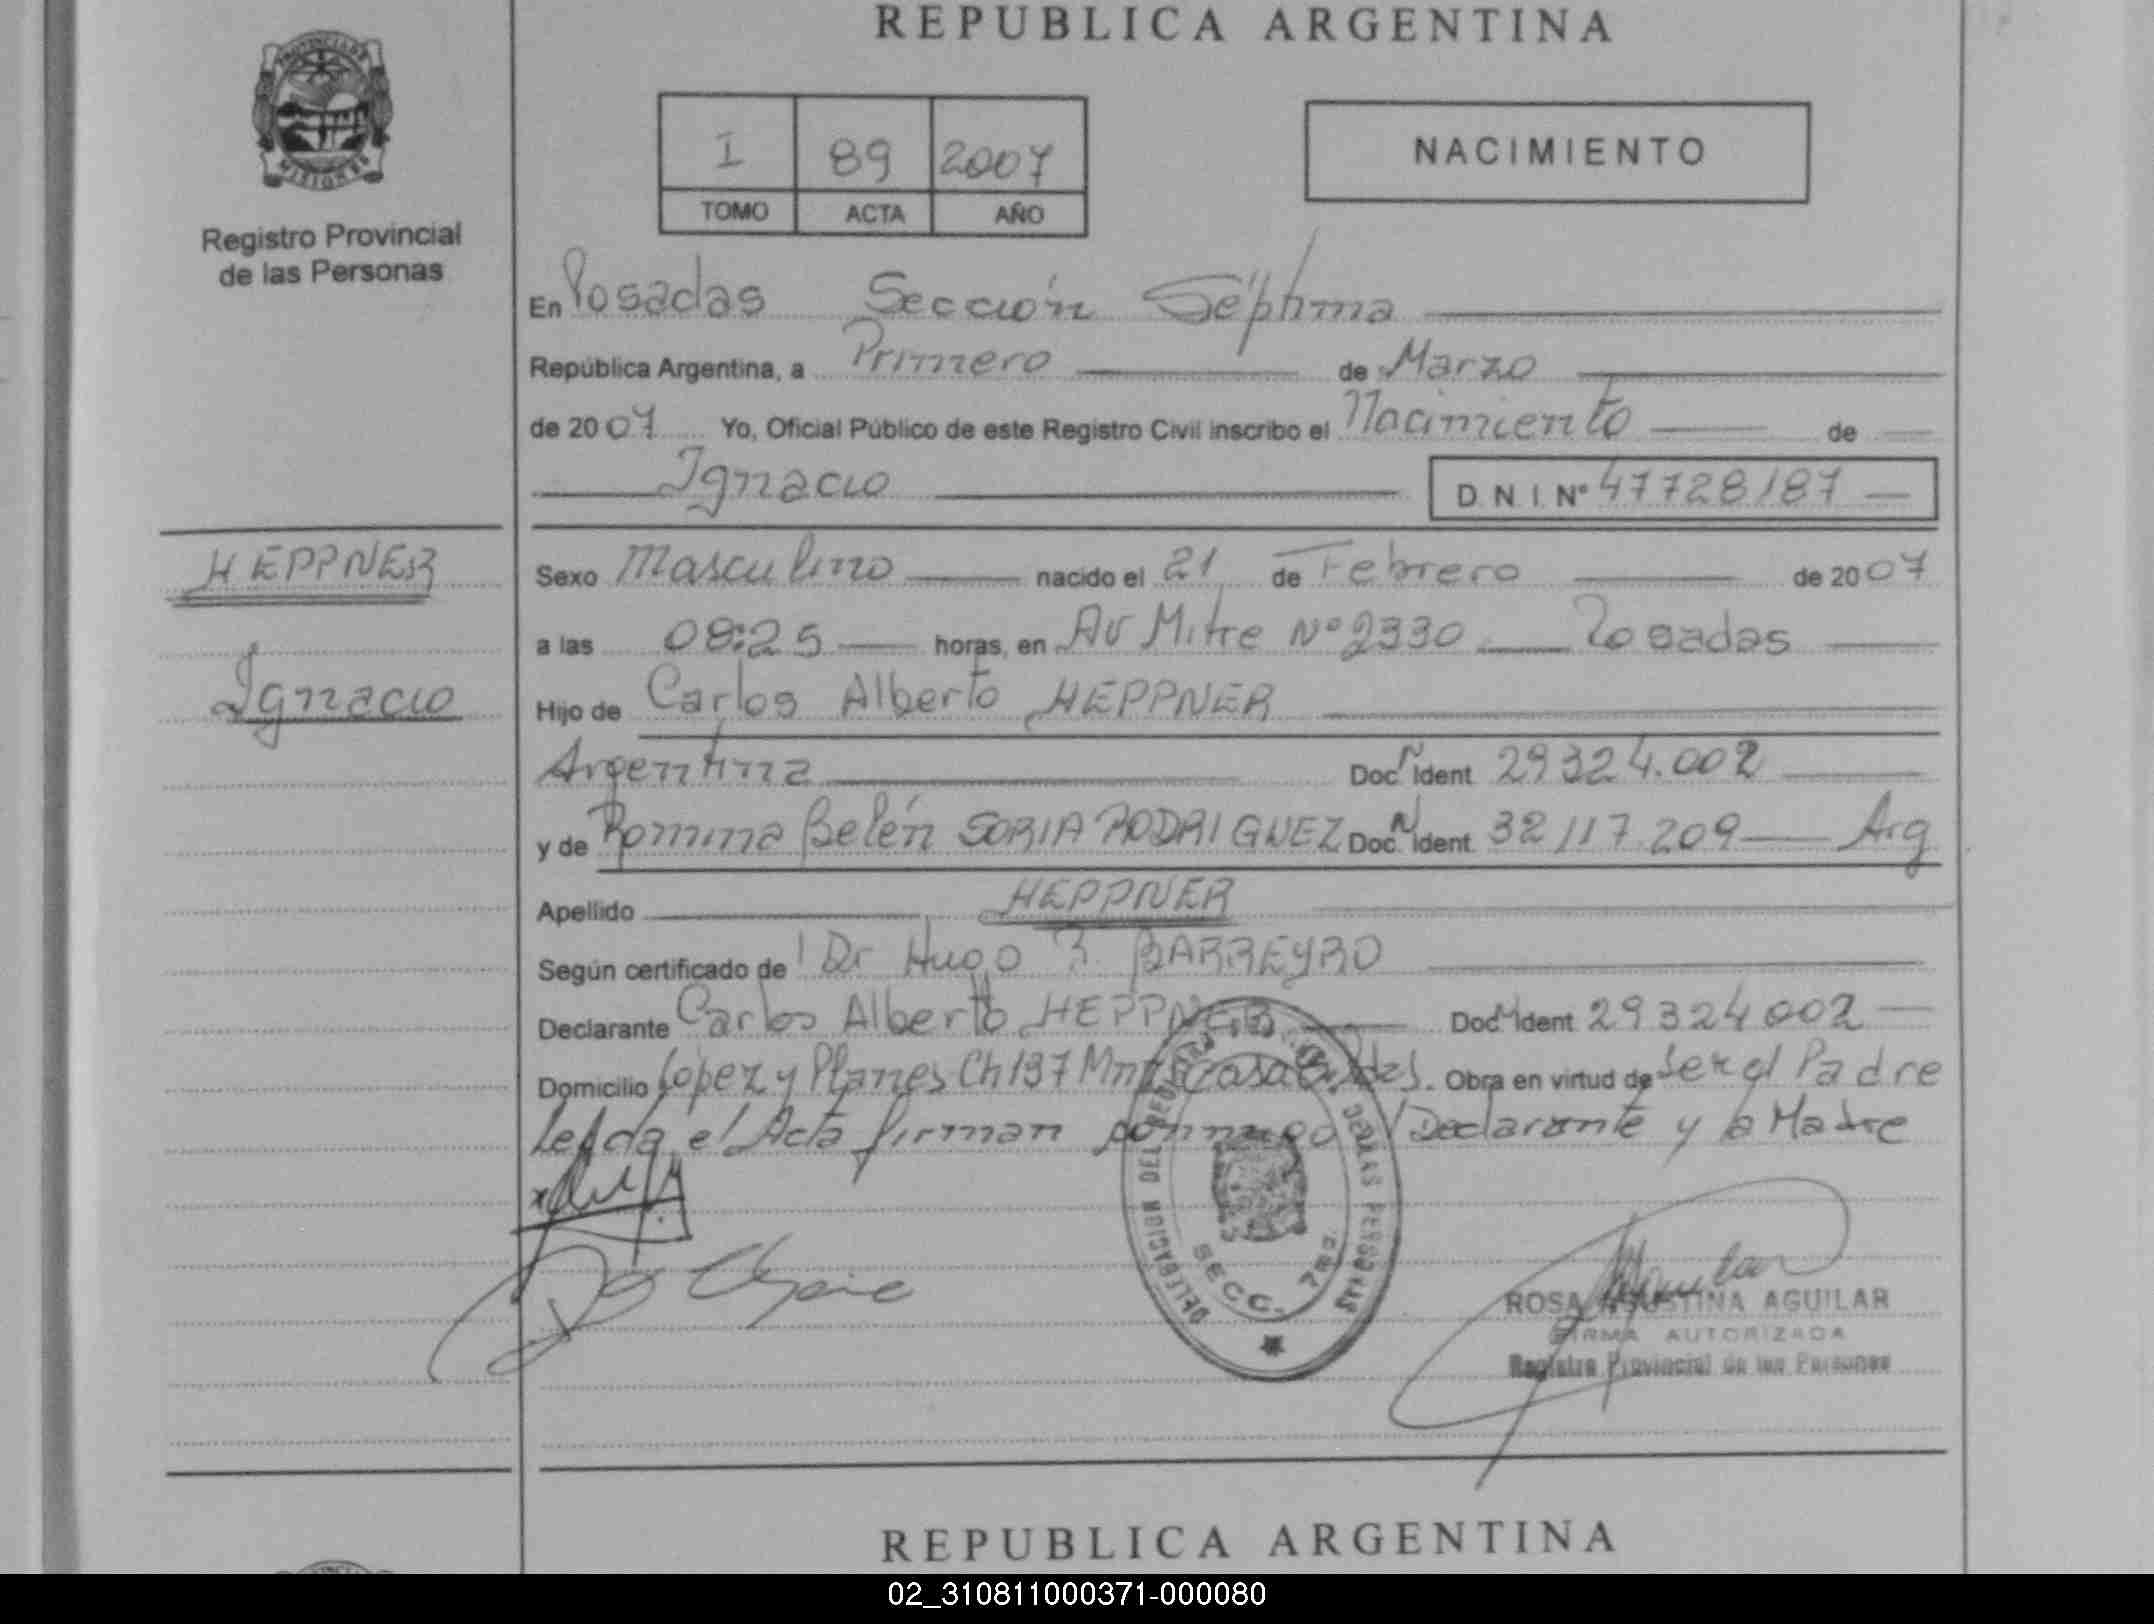 REPUBLICA ARGENTINA
PROVINCIA DE
MISIONES
Registro Provincial
de las Personas
I 89 2007
TOMO ACTA AÑO
NACIMIENTO
En Posadas Sección Séptima
República Argentina, a Primero de Marzo
de 2007 Yo, Oficial Público de este Registro Civil inscribo el Nacimiento de
Ignacio D.N.I. Nº 47728187
HEPPNER
Ignacio
Sexo Masculino nacido el 21 de Febrero de 2007
a las 08:25 horas, en Av Mitre Nº 2330 Posadas
Hijo de Carlos Alberto HEPPNER
Argentina Doc. N Ident 29324.002
y de Romina Belén SORIA RODRIGUEZ Doc. N Ident 32117.209 Arg
Apellido HEPPNER
Según certificado de Dr Hugo R. BARREYRO
Declarante Carlos Alberto HEPPNER Doc. N Ident 29324002
Domicilio López y Planes Ch 137 Mnz Casa Pdas. Obra en virtud de Ser el Padre
Leída el Acta firman conmigo Declarante y la Madre
DELEGACION DEL REGISTRO PROVINCIAL DE LAS PERSONAS
SECC. 7ma.
ROSA AGUSTINA AGUILAR
FIRMA AUTORIZADA
Registro Provincial de las Personas
REPUBLICA ARGENTINA
02_310811000371-000080